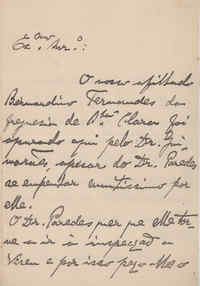 Ex.mo Snr.:
O nosso afilhado
Bernardino Fernandes da
freguesia de St.ª Clara foi
apurado aqui pelo Dr. Gui
marães, apesar do Dr. Paredes
se empenhar muitissimo por
elle.
O Dr. Paredes quer que
ir á inspeção
Vizeu e por isso peço-lhe o